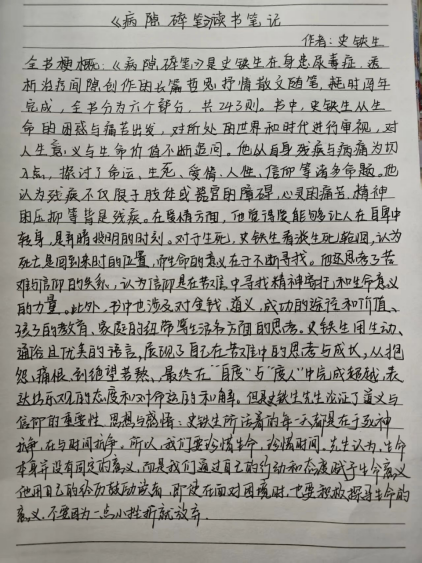 《病隙碎笔》读书笔记
作者：史铁生
全书梗概：《病隙碎笔》是史铁生在身患尿毒症、透
析治疗间隙创作的长篇哲思抒情散文随笔，耗时四年
完成，全书分为六个部分，共243则。书中，史铁生从生
命的困惑与痛苦出发，对所处的世界和时代进行审视，对
人生意义与生命价值不断追问。他从自身残疾与病痛为切
入点，探讨了命运、生死、爱情、人性、信仰等诸多命题。他
认为残疾不仅限于肢体或器官的障碍，心灵的痛苦、精神
的压抑等皆是残疾。在爱情方面，他觉得爱能够让人在自卑中
转身，是弃暗投明的时刻。对于生死，史铁生看淡生死轮回，认为
死亡是回到来时的位置，而生命的意义在于不断寻找。他还思考了苦
难与信仰的关系，认为信仰是在苦难中寻找精神寄托和生命意义
的力量。此外，书中也涉及对金钱、道义、成功的途径和价值、
孩子的教育、家庭的纽带等生活各方面的思考。史铁生用生动、
通俗且优美的语言，展现了自己在苦难中的思考与成长，从抱
怨、痛恨到绝望苦熬，最终在“自度”与“度人”中完成超越，表
达出乐观的态度和对命运的和解。但是史铁生先生论证了道义与
信仰的重要性。思想与感悟：史铁生所活着的每一天都是在于死神
抗争，在与时间抗争。所以，我们要珍惜生命，珍惜时间。先生认为，生命
本身并没有固定的意义，而是我们通过自己的行动和态度赋予生命意义
他用自己的经历鼓励读者，即使在面对困境时，也要积极探寻生命的
意义，不要因为一点小挫折就放弃.